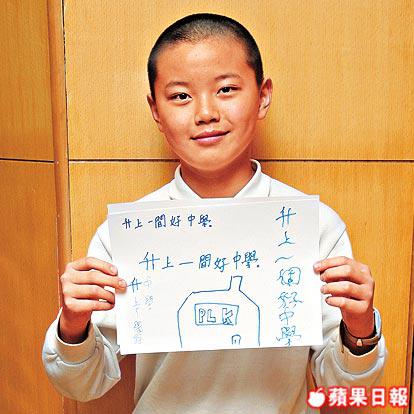 升上一間好中學
升上一間好中學
升上一個好中學
PLK
蘋果日報